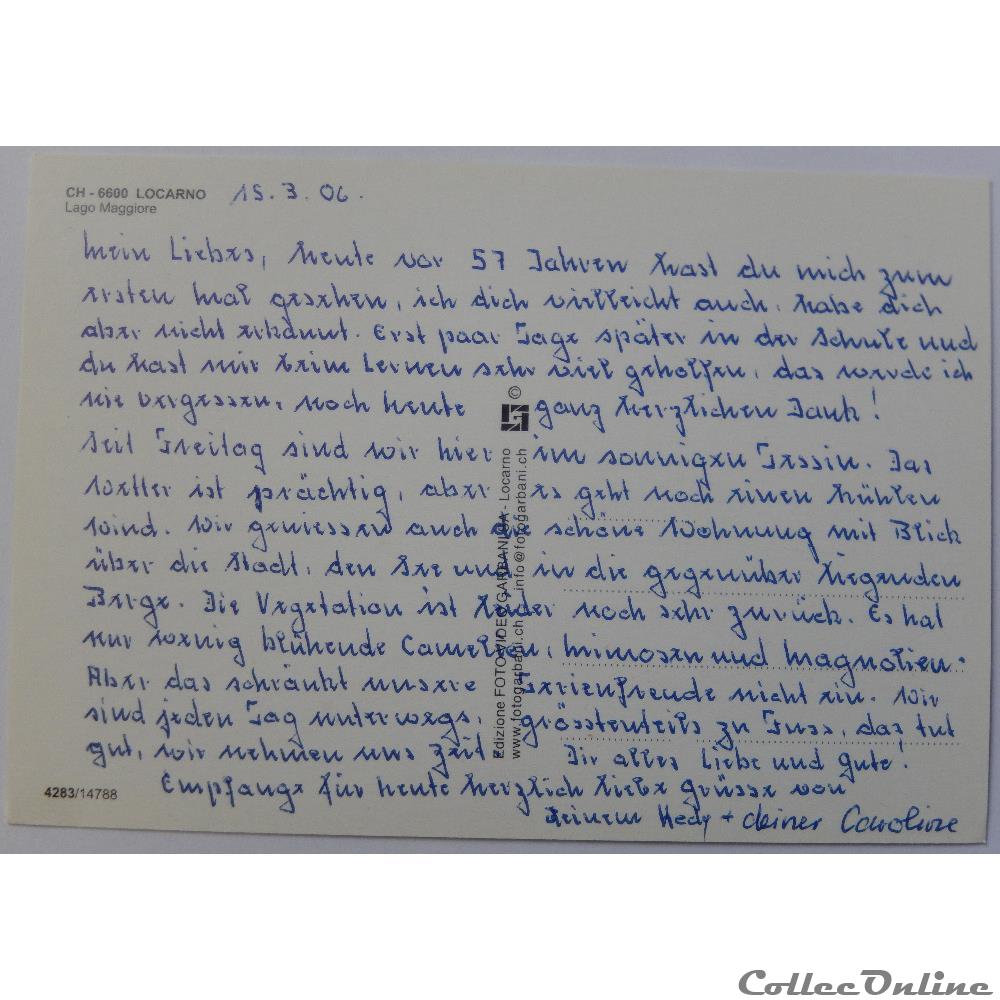 CH - 6600 LOCARNO 15. 3. 06.
Lago Maggiore
Mein Liebes, heute vor 57 Jahren hast du mich zum
ersten Mal gesehen, ich dich vielleicht auch, habe dich
aber nicht erkannt. Erst paar Tage später in der Schule und
du hast mir beim Lernen sehr viel geholfen, das werde ich
nie vergessen, noch heute ganz herzlichen Dank!
Seit Freitag sind wir hier im sonnigen Tessin. Das
Wetter ist prächtig, aber es geht noch einen kühlen
Wind. Wir geniessen auch die schöne Wohnung mit Blick
über die Stadt, den See und in die gegenüber liegenden
Berge. Die Vegetation ist leider noch sehr zurück. Es hat
nur wenig blühende Camelien, Mimosen und Magnolien.
Aber das schränkt unsere Ferienfreude nicht ein. Wir
sind jeden Tag unterwegs, grösstenteils zu Fuss, das tut
gut, wir nehmen uns Zeit. Dir alles Liebe und Gute!
Empfange für heute herzlich liebe Grüsse von
deinem Hedy + deiner Caroline
4283/14788
Edizione FOTO-VIDEO GARBANI SA - Locarno
www.fotogarbani.ch - info@fotogarbani.ch
©
CollecOnline